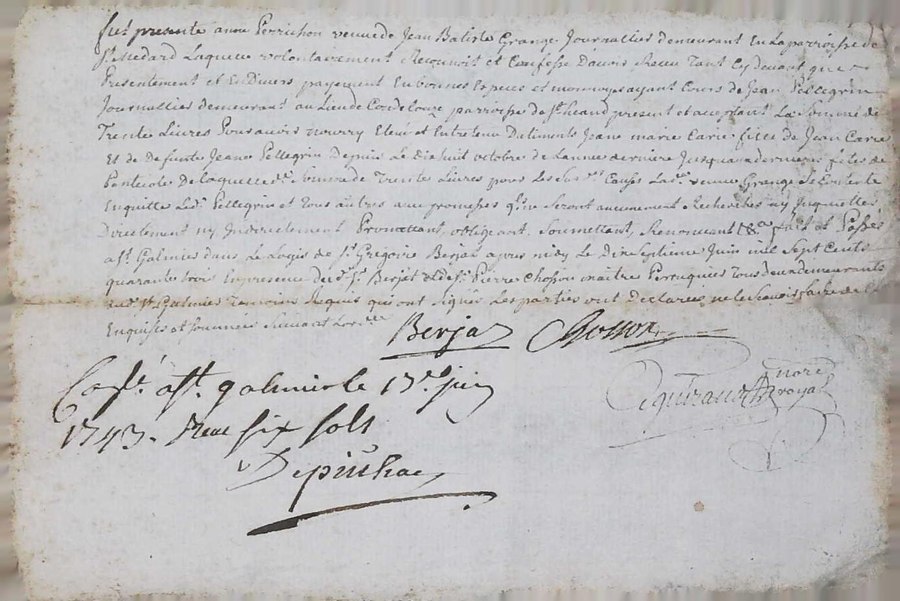 fut presente anne Perrichon veuve de Jean Batiste Grange Journallier demeurant En La parroisse de
St Medard Laquelle volontairement Reconnoit et Confesse Davoir Receu Tant Cydevant que
Presentement et En Divers payement En bonnes Especes et monnoye ayant Cours de Jean Pellegrin
Journallier demeurant au Lieu de Coudelouze parroisse de St heand present et acceptant La Somme de
Trente Livres Pour avoir nourry Elevé et Entretenu Jeane marie Carie fille de Jean Carie
Et de Defunte Jeane Pellegrin Depuis Le dixhuit octobre de Lannee derniere Jusqua dernieres fetes de
Pentecote De laquelle de. Somme de Trente Livres pour Les Sus. Causes La de. veuve Grange Se Contente
En quitte Led. Pellegrin et Tous autres avec promesses quil ne Seront aucunement Recherches ny Inquiettes
Directement ny Indirectement Promettant, obligeant, Soumettant, Renonceant &a fait et Passé
a St Galmier dans Le Logis de Sr Gregoire Berjat apres midy Le Dixseptieme Juin mil Sept Cents
quarante trois En presence dud. Sr Berjat et de Sr Pierre Chosson maitre Perruquier Tous deux demeurants
aud. St Galmier Temoins Requis qui ont Signé Les parties ont declarée ne le Scavoir faire de Ce
Enquises et Sommées Suivant Lordce
Berjat Chosson
nore
royal
Conlé. a St. galmier le 17e. juin
1743. Receu six sols
Depiuhac